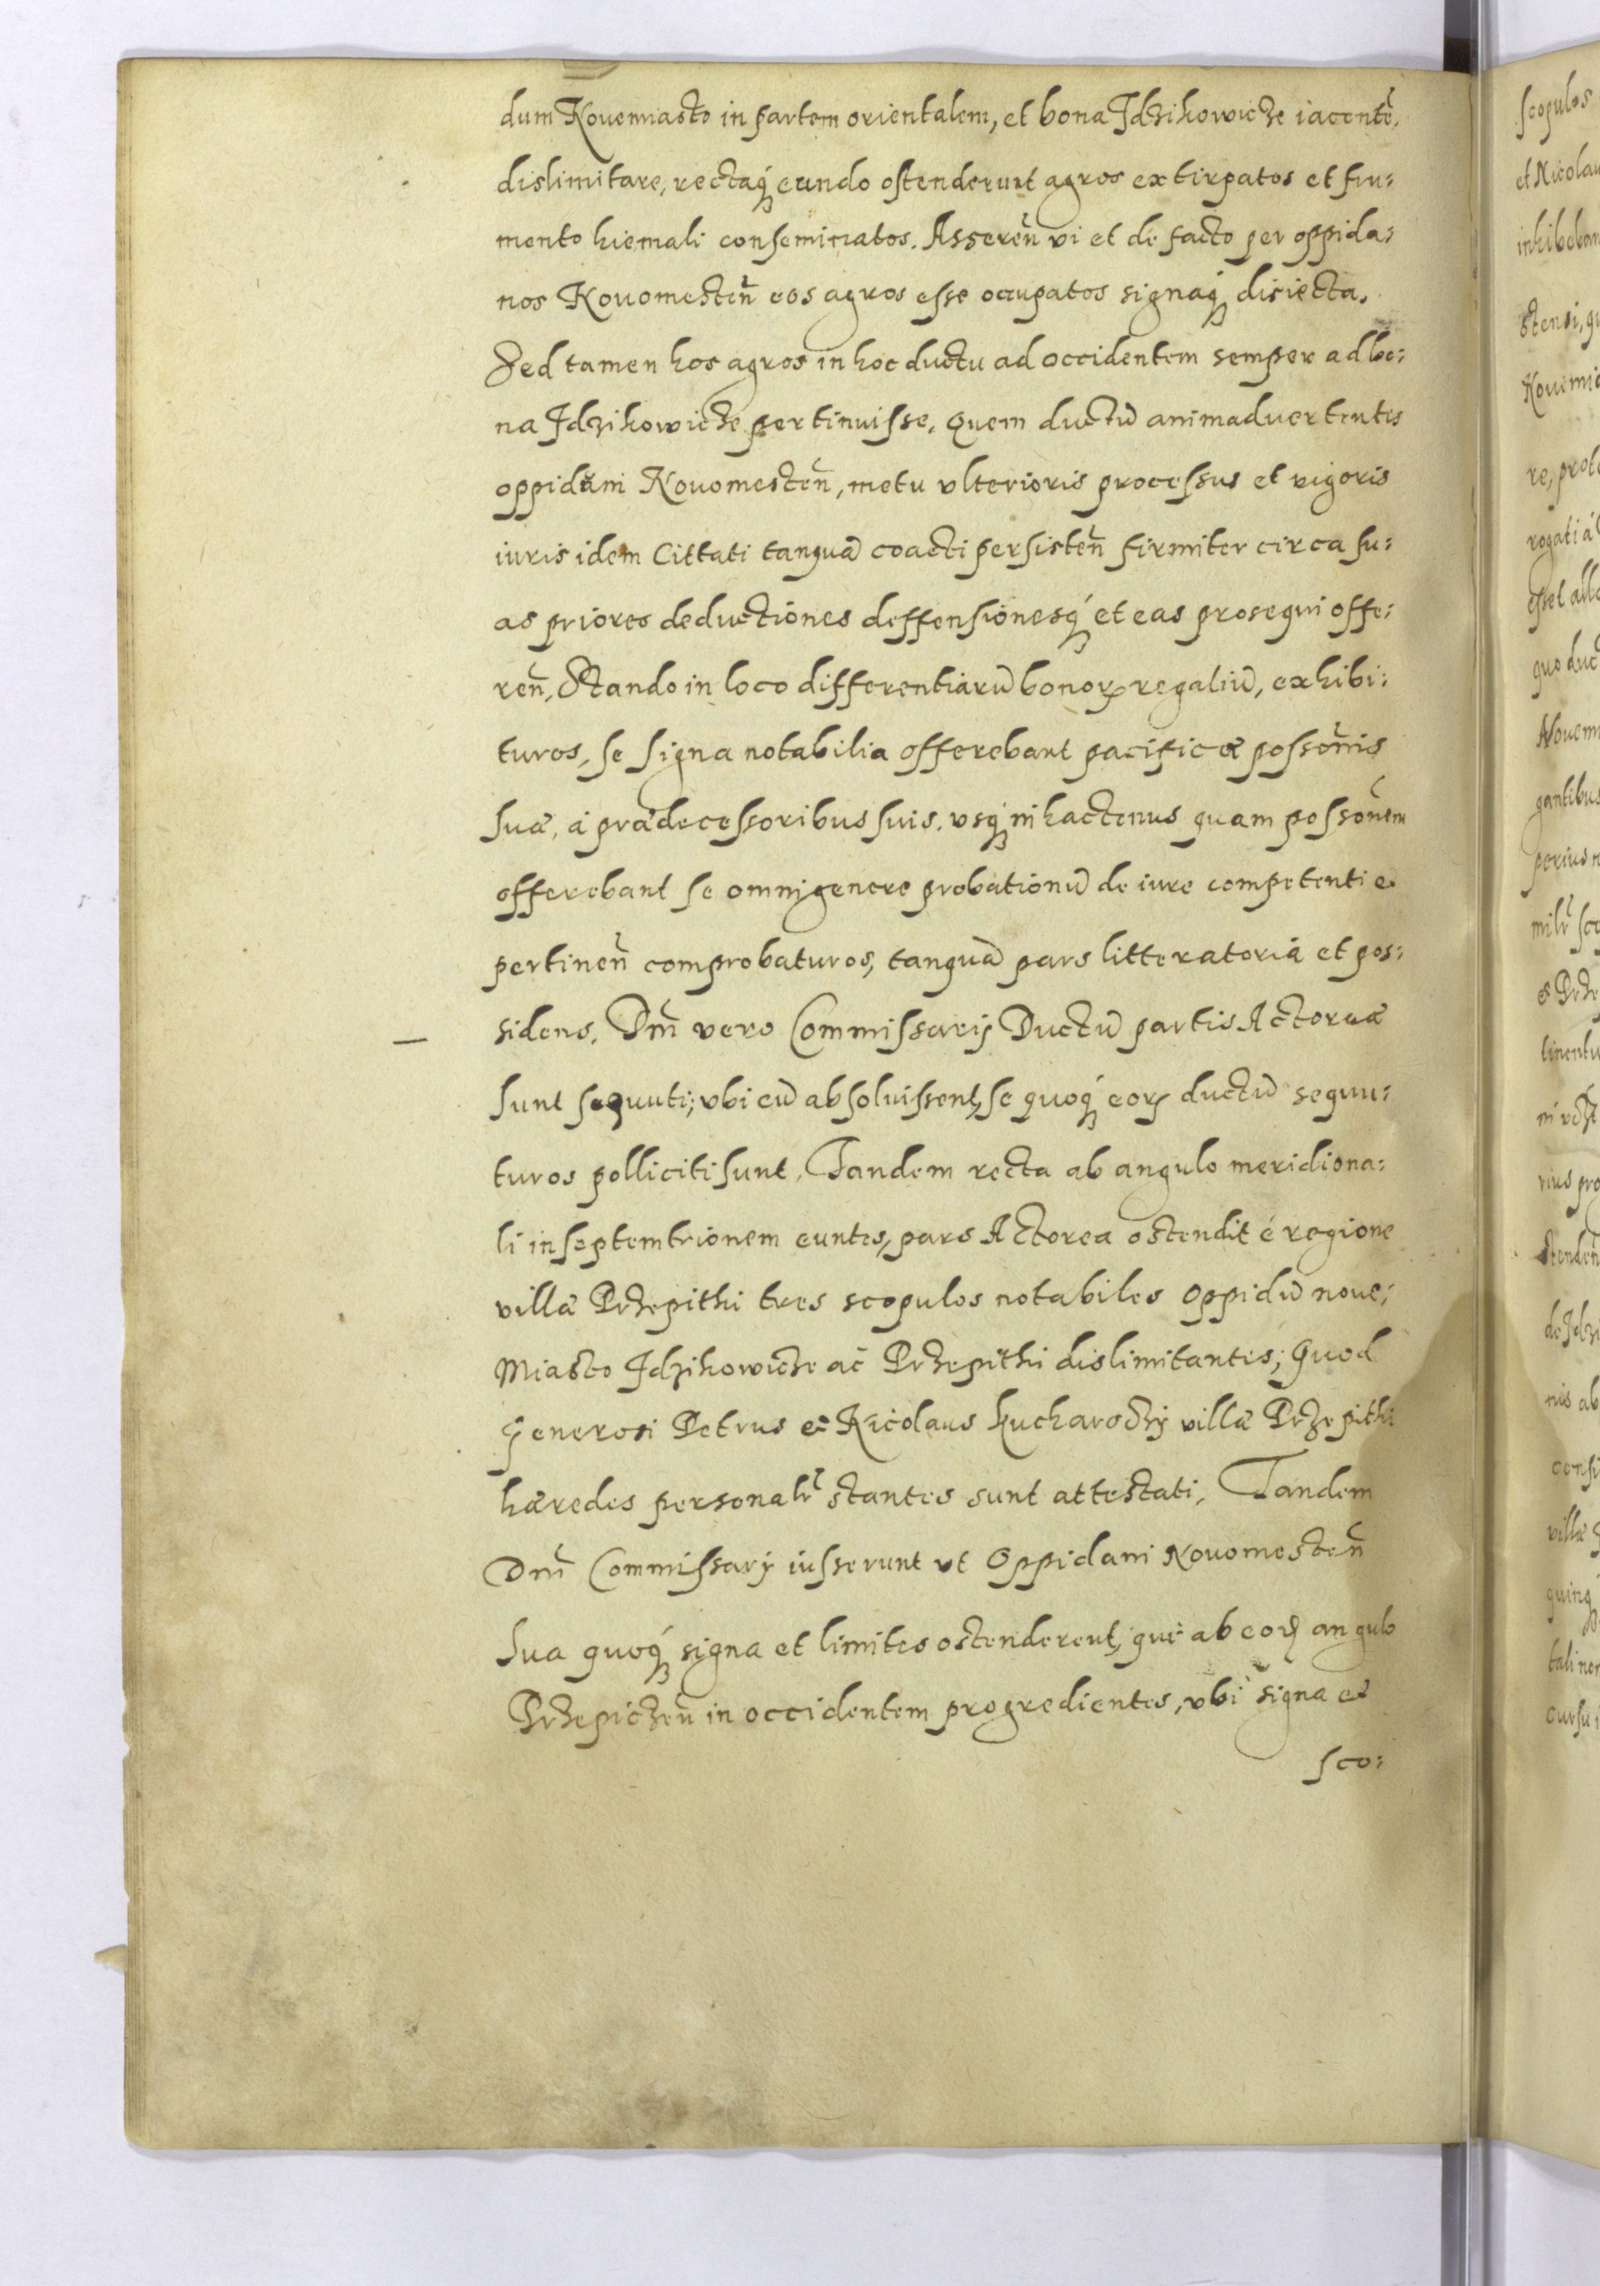 dum Novemiasto in partem orientalem, et bona Jdzikowicze iacentẽ.
dislimitare, rectaq́ eundo ostenderunt agros extirpatos et fru:
mento hiemali conseminatos. Asseren̄ vi et de facto per oppida:
nos Novomesten̄ eos agros esse occupatos signaq́ disiecta.
Sed tamen hos agros in hoc ductu ad occidentem semper ad bo:
na Jdzikowicze pertinuisse. Quem ductū animaduertentes
oppidani Novomesten̄, metu vlterioris processus et rigoris
iuris idem Cittati tanquā coacti persisten̄ firmiter circa su:
as priores deductiones deffensionesq́ et eas prosequi offe:
ren̄, Stando in loco differentiarū bonorꝝ regaliū, exhibi:
turos, se signa notabilia offerebant pacificæ possōnis
suæ, á prædecessoribus suis, vsq́ in hactenus quam possōnem
offerebant se omni genere probationū de iure competenti et
pertinen̄ comprobaturos, tanquā pars litteratoria et pos:
sidens. Dn̄i vero Commissarij Ductū partis Actoreæ
sunt sequuti; vbi cū absoluissent, se quoq́ eorꝝ ductū sequu:
turos polliciti sunt. Tandem recta ab angulo meridiona:
li in septemtrionem euntes, pars Actorea ostendit é regione
villæ Przepithi tres scopulos notabiles Oppidū nove:
Miasto Jdzikowicze ac Przepithi dislimitantes; Quod
Generosi Petrus et Nicolaus Kucharsczij villæ Przepithi
hæredes personalr̃ stantes sunt attestati. Tandem
Dn̄i Commissarij iusserunt vt Oppidani Novomesten̄
sua quoq́ signa et limites ostenderent, qui ab eorꝝ angulo
Przepiczen̄ in occidentem progredientes, vbi signa et
sco: